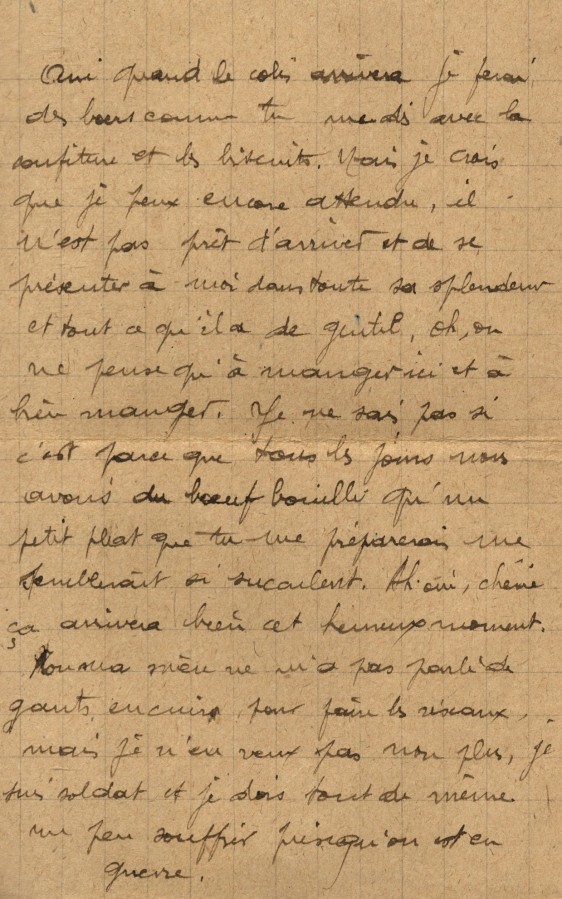 Oui quand le colis arrivera je ferai
des bours comme tu me dis avec la
confiture et les biscuits. Mais je crois
que je peux encore attendre, il
n'est pas prêt d'arriver et de se
présenter à moi dans toute sa splendeur
et tout ce qu'il a de gentil, oh, on
ne pense qu'à manger ici et à
bien manger. Je ne sais pas si
c'est parce que tous les jours nous
avons du bœuf bouilli qu'un
petit plat que tu me préparerais me
semblerait si succulent. Ah oui, chérie
ça arrivera bien cet heureux moment.
Non ma mère ne m'a pas parlé de
gants en cuir pour faire les réseaux,
mais je n'en veux pas non plus, je
suis soldat et je dois tout de même
un peu souffrir puisqu'on est en
guerre.